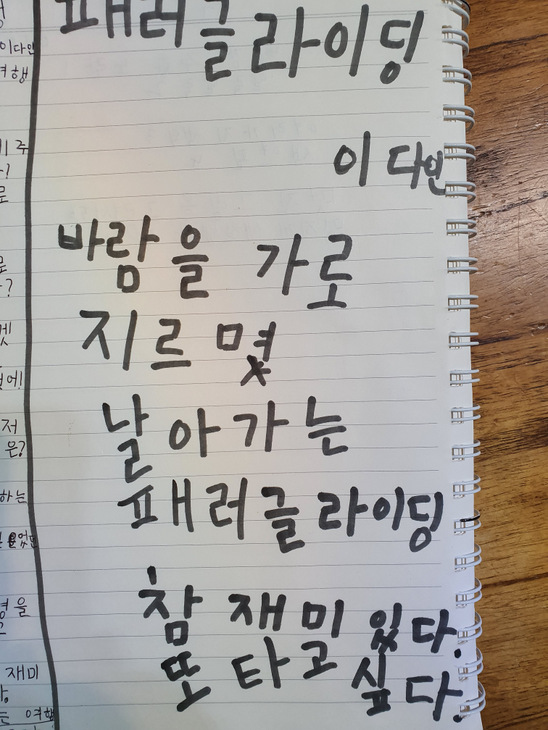 패러글라이딩
이다인
바람을 가로
지르몇
날아가는
패러글라이딩
참 재미있다.
또 타고싶다.
이다인
여행
주
?
저
은?
하는
을
재미
는 여행